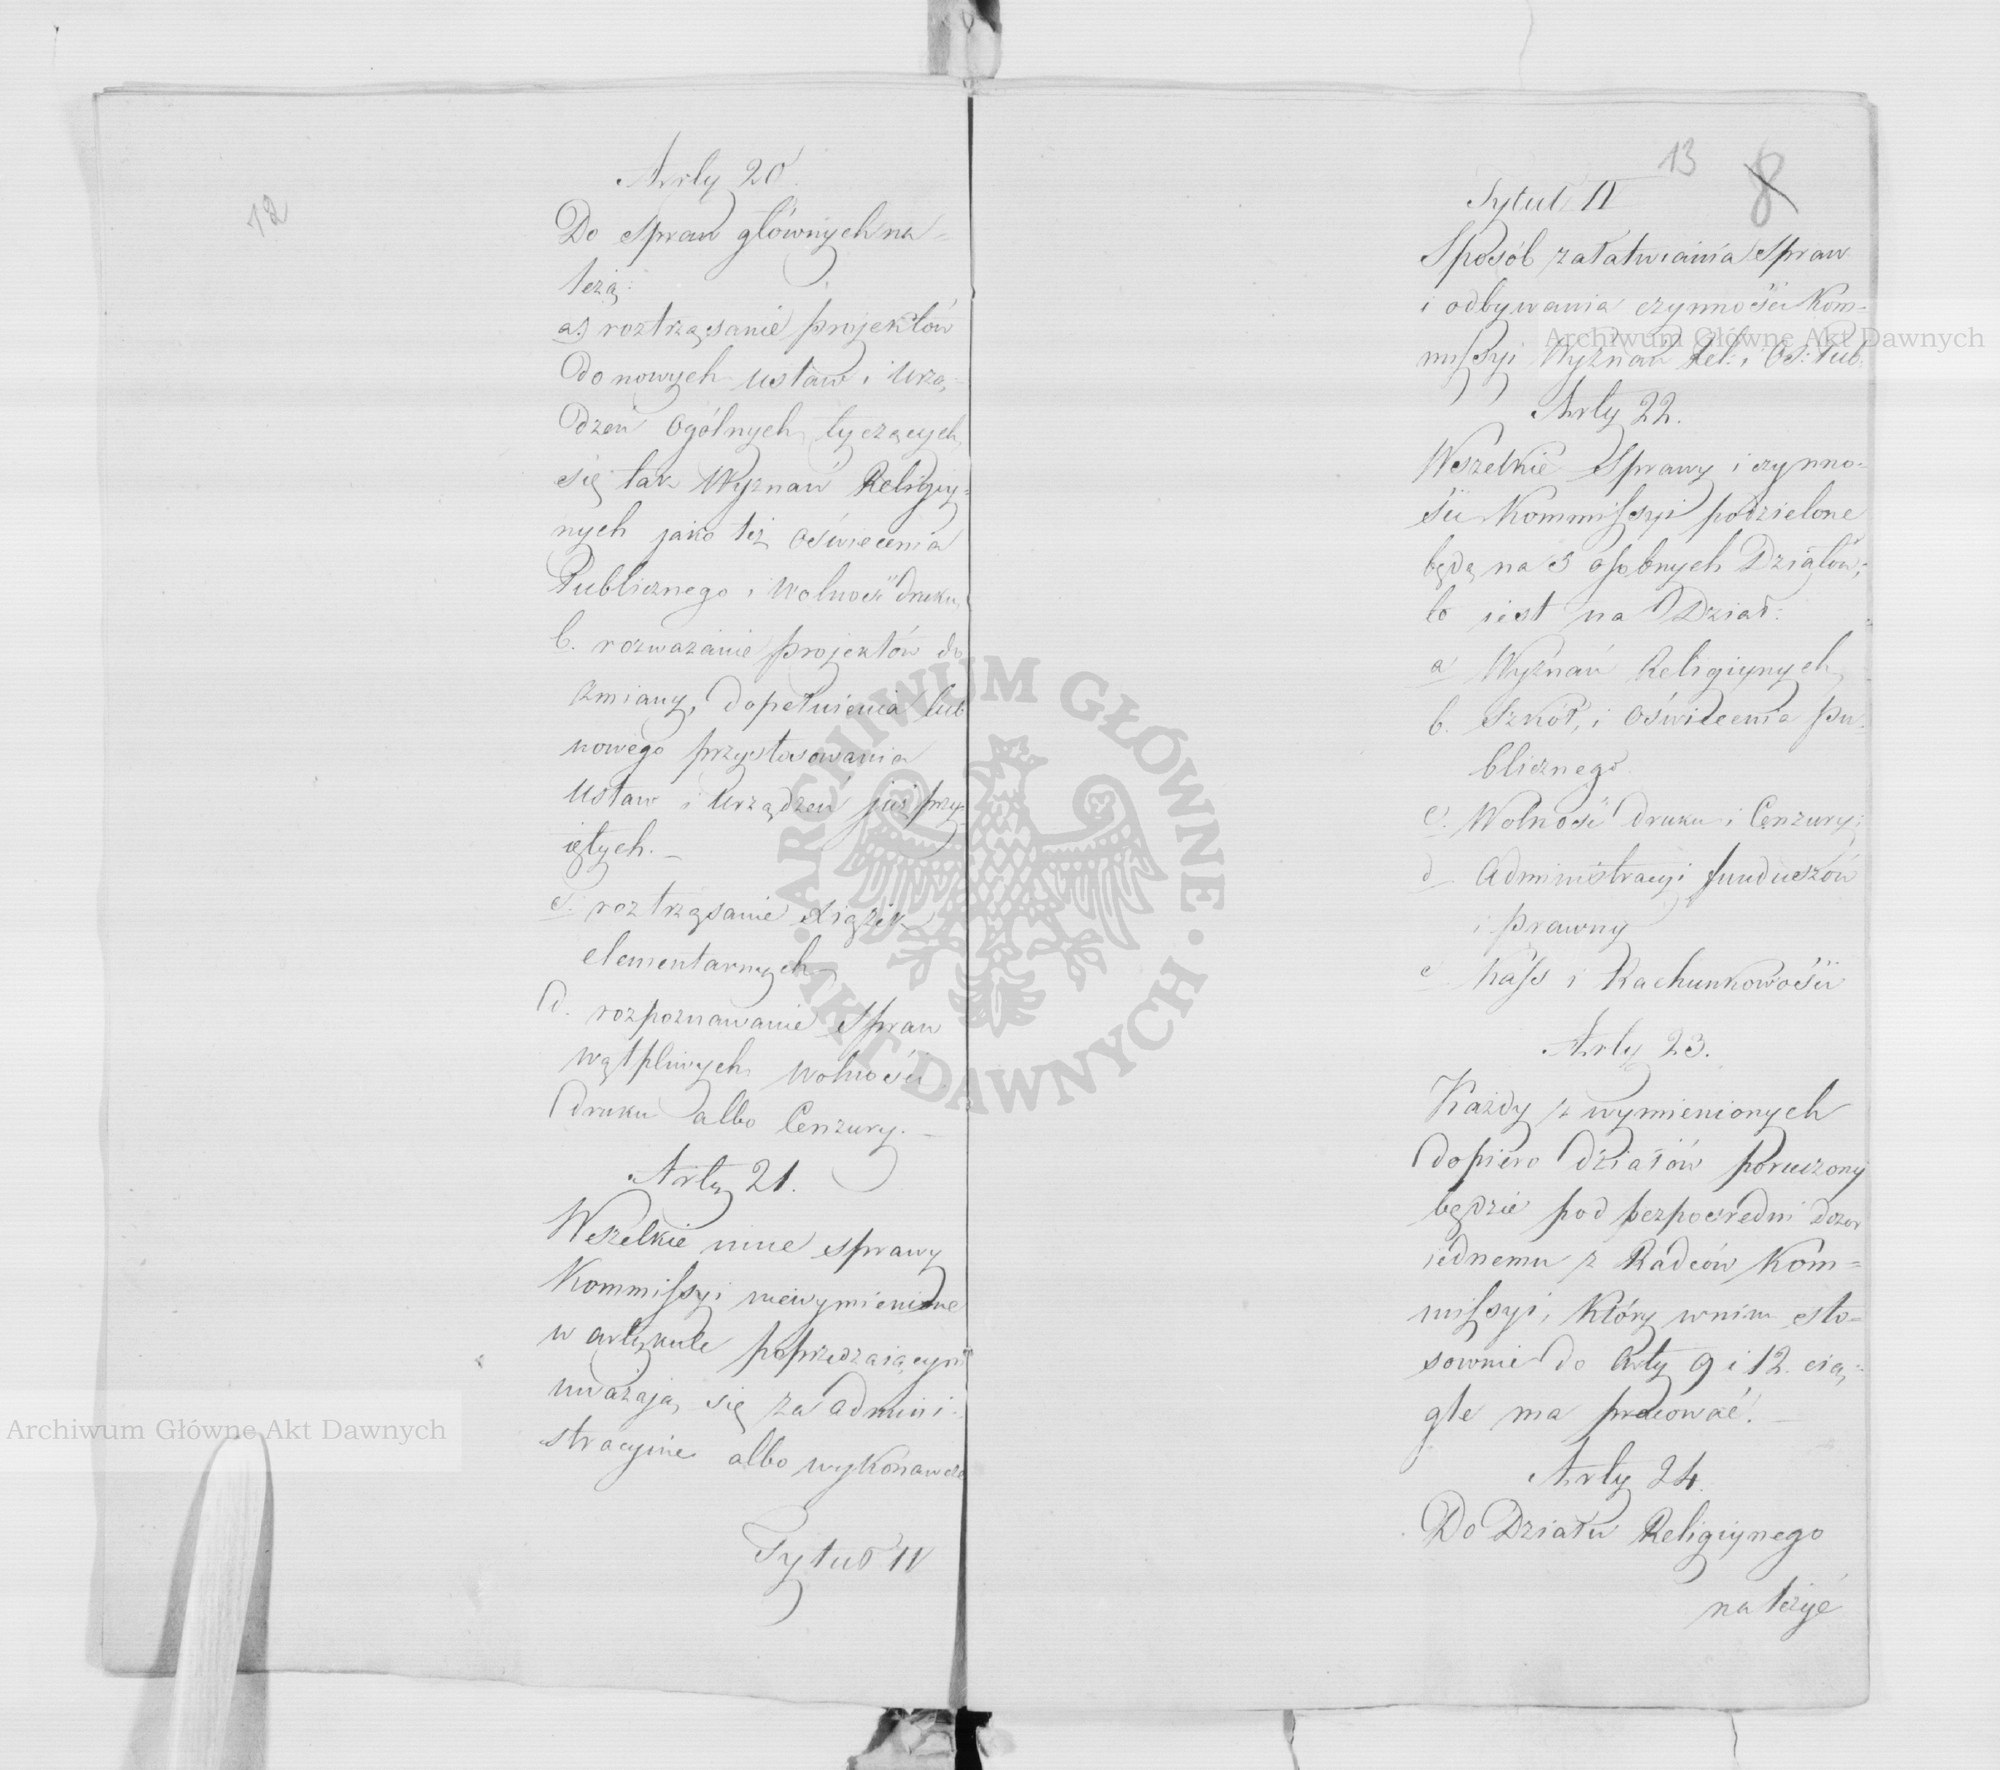 12
Arty 20
Do spraw głównych na-
leżą:
a) roztrząsanie projektów
do nowych ustaw i urzą-
dzeń ogólnych tyczących
się tak Wyznań Religiy-
nych jako też oświecenia
Publicznego i wolności druku,
b. rozważanie projektów do
zmiany, dopełnienia lub
nowego przystosowania
Ustaw i urządzeń już przy-
iętych. —
c. roztrząsanie xiążek
elementarnych
d. rozpoznawanie spraw
wątpliwych wolności
druku albo Cenzury. —
Arty 21.
Wszelkie inne sprawy
Kommissyi niewymienione
w artykule poprzedzaiącym
uważają się za admini-
stracyine albo wykonawcze
Tytuł IV
13 8
Tytuł IV
Sposób załatwiania Spraw
i odbywania czynności Kom-
missyi Wyznań Rel: i Oś: Pub.
Arty 22.
Wszelkie Sprawy i czynno-
ści Kommissyi podzielone
będą na 5 osobnych Działów;
to iest na Dział:
a Wyznań Religiynych
b. Szkół, i Oświecenia pu-
blicznego.
c. Wolności druku i Cenzury;
d Administracyi funduszów
i prawny
e Kass i Rachunkowości
Arty 23.
Każdy z wymienionych
dopiero działów poruczony
będzie pod bezpośredni dozor
iednemu z Radców Kom-
missyi, który w nim sto-
sownie do Arty 9 i 12. cią-
gle ma pracować. —
Arty 24.
Do Działu Religiynego
należyć
Archiwum Główne Akt Dawnych
Archiwum Główne Akt Dawnych
ARCHIWUM GŁÓWNE · AKT DAWNYCH ·